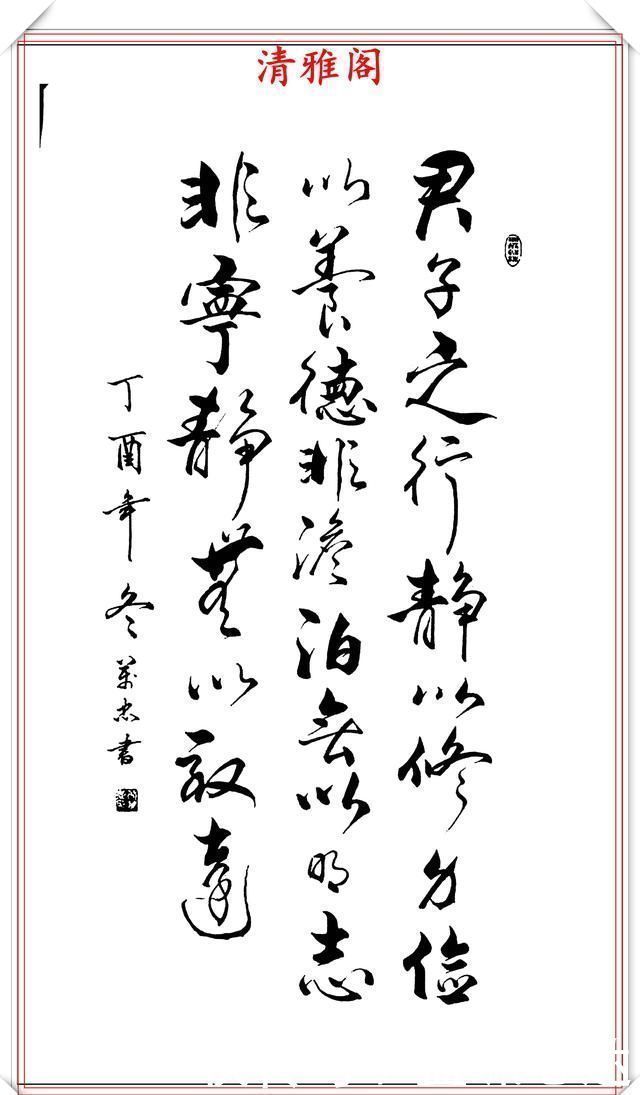 清雅阁
君子之行静以修身俭
以養德非澹泊無以明志
非寧静無以致達
丁酉年冬萬忠書